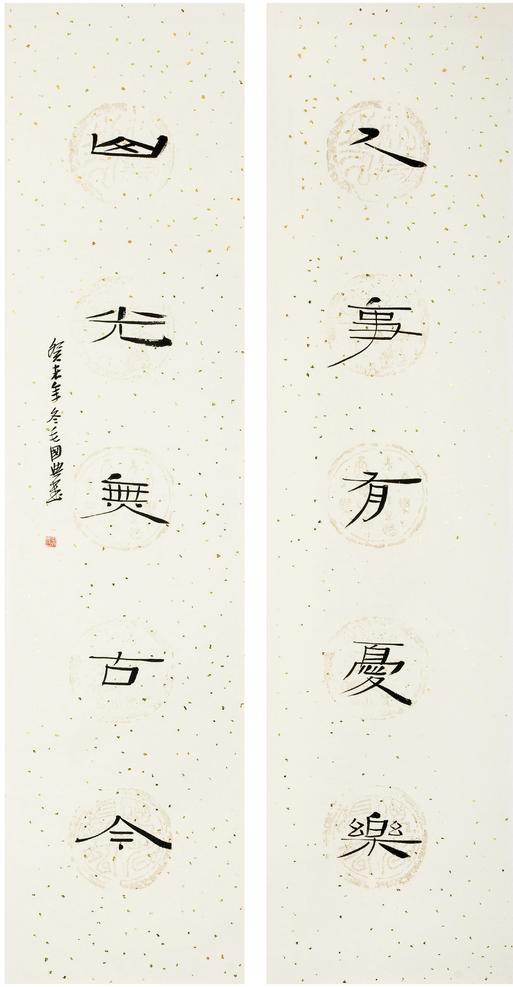 人事有憂樂
山光無古今
癸未年冬毛國典墨